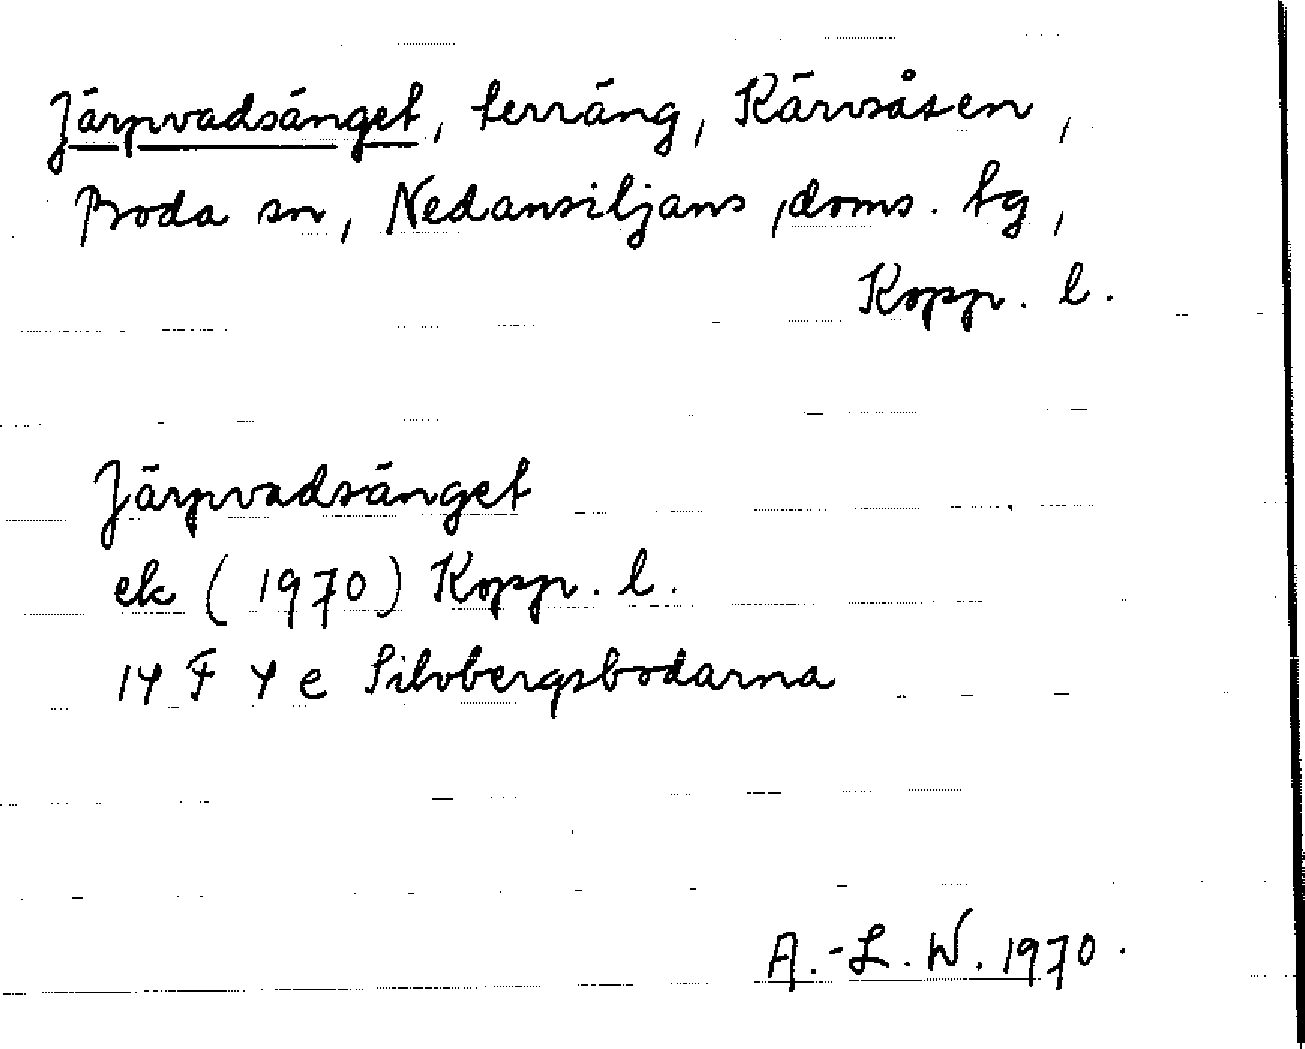 Järpvadsänget, terräng, Kärvsåsen,
Boda sn, Nedansiljans, doms. tg,
Kopp. l.
Järpvadsänget
ek (1970) Kopp. l.
14 F 4 e Silvbergsbodarna
A.-L. W. 1970.